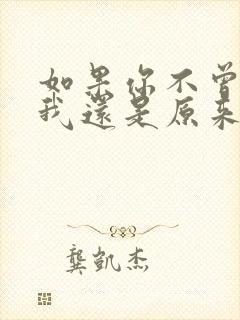 如果你不曾
我還是原來
龔凱杰